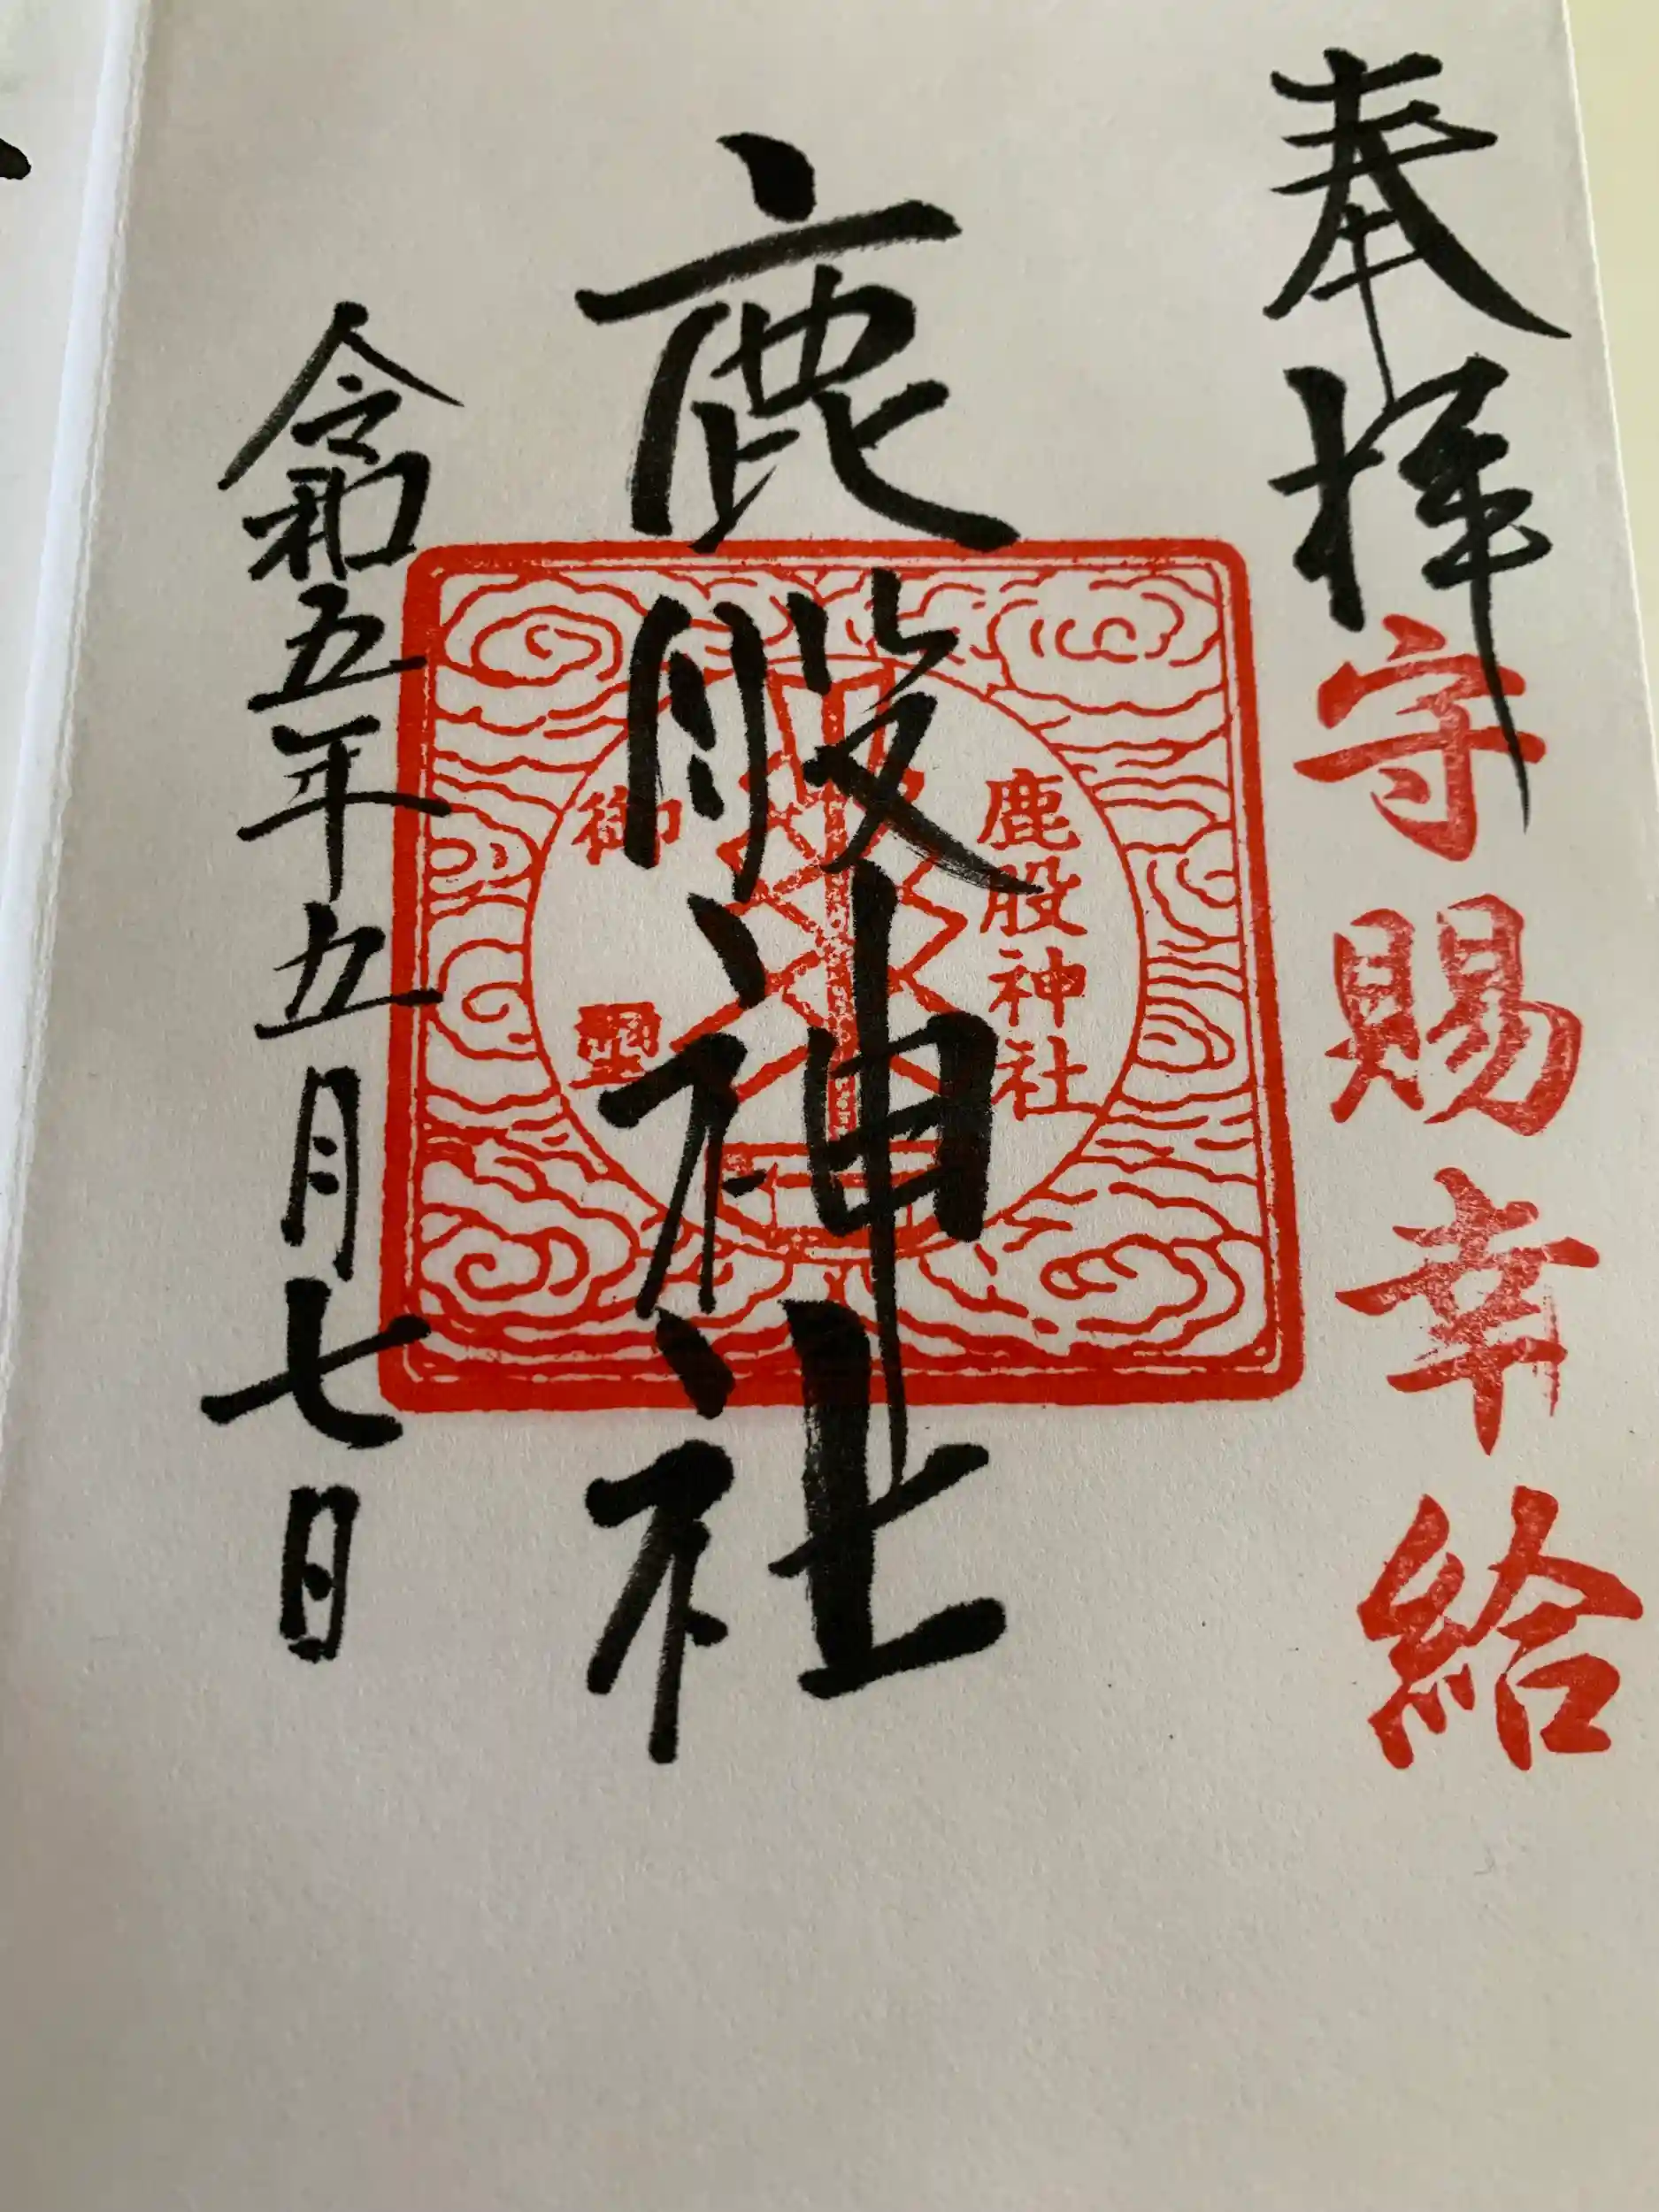 奉拝
守賜幸給
鹿股神社
鹿股神社
御璽
令和五年五月七日